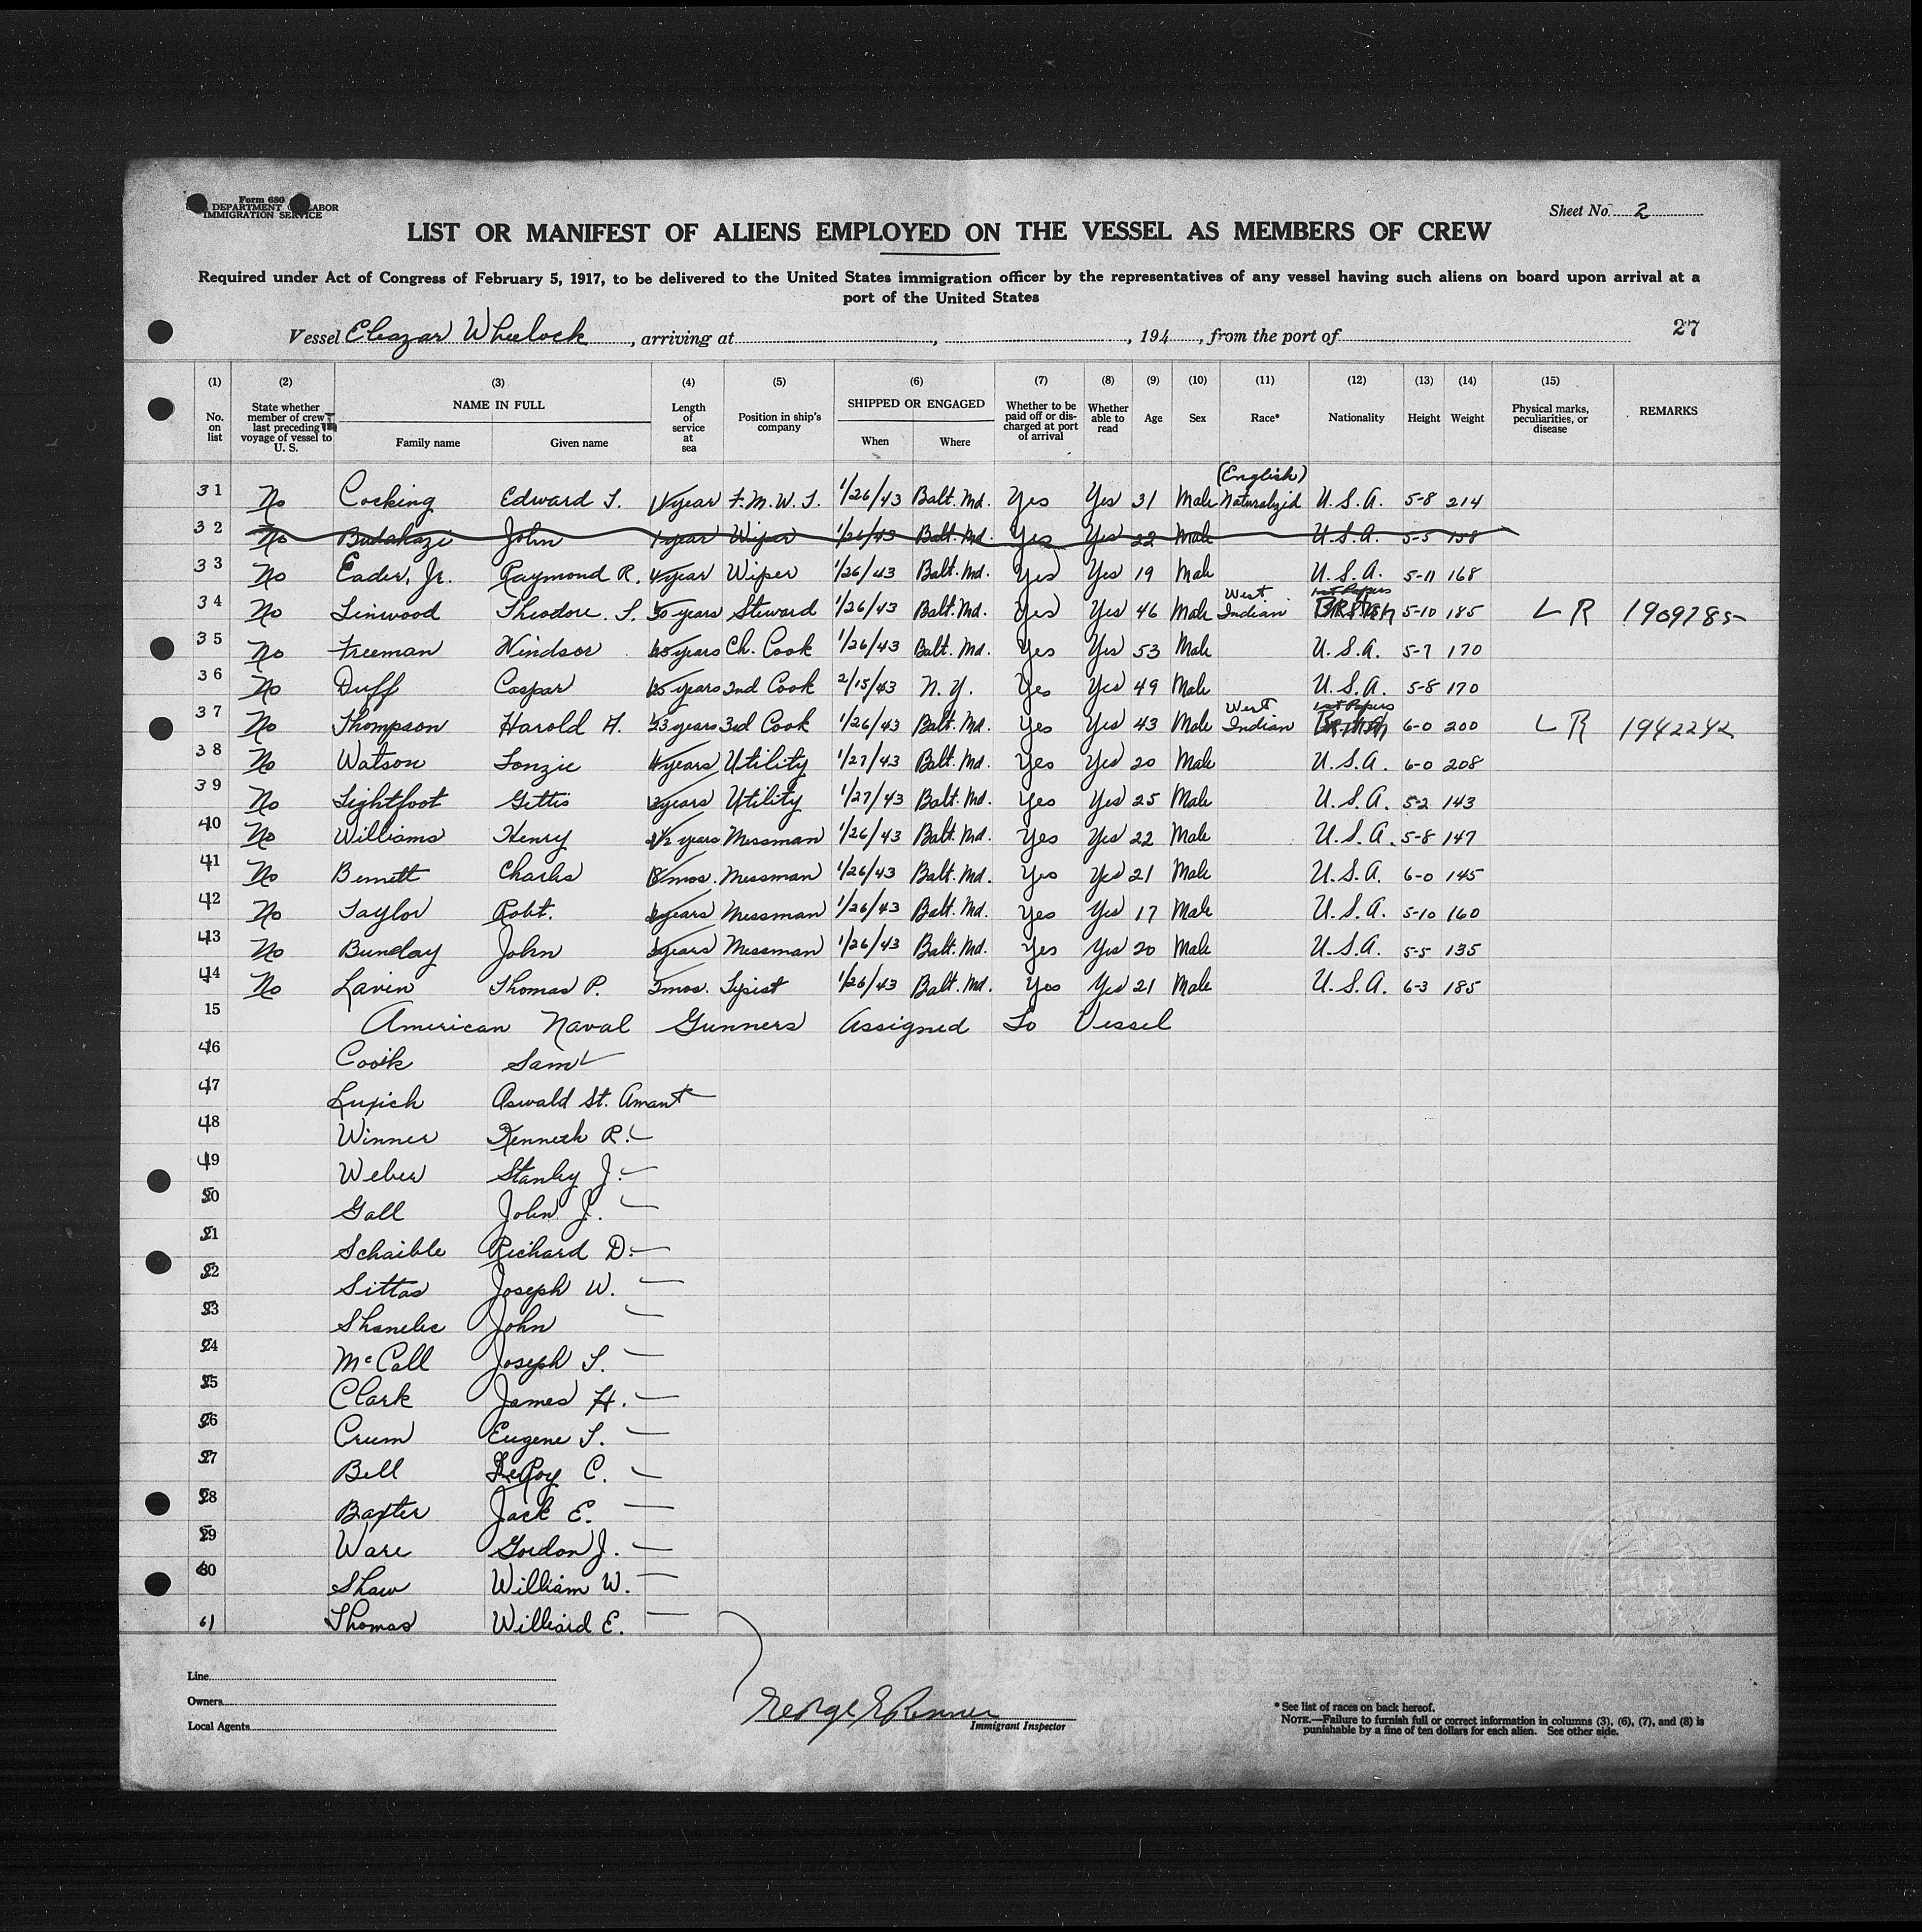 Form 680
U. S. DEPARTMENT OF LABOR
IMMIGRATION SERVICE
Sheet No. 2
LIST OR MANIFEST OF ALIENS EMPLOYED ON THE VESSEL AS MEMBERS OF CREW
Required under Act of Congress of February 5, 1917, to be delivered to the United States immigration officer by the representatives of any vessel having such aliens on board upon arrival at a
port of the United States
Vessel Eleazar Wheelock, arriving at , , 194 , from the port of 27
(1) (2) (3) (4) (5) (6) (7) (8) (9) (10) (11) (12) (13) (14) (15)
No. on list
State whether member of crew last preceding voyage of vessel to U. S.
NAME IN FULL
Family name Given name
Length of service at sea
Position in ship's company
SHIPPED OR ENGAGED
When Where
Whether to be paid off or discharged at port of arrival
Whether able to read
Age Sex Race* Nationality Height Weight
Physical marks, peculiarities, or disease
REMARKS
(English)
31 No Cocking Edward J. year F.M.W.T. 1/26/43 Balt. Md. Yes Yes 31 Male Naturalized U.S.A. 5-8 214
32 No John 1 year Wiper 1/26/43 Balt. Md. Yes Yes 22 Male U.S.A. 5-5 158
33 No Eader, Jr. Raymond R. year Wiper 1/26/43 Balt. Md. Yes Yes 19 Male U.S.A. 5-11 168
West 1st Papers
34 No Linwood Theodore. S. 30 years Steward 1/26/43 Balt. Md. Yes Yes 46 Male Indian British 5-10 185 L R 1909785
35 No Freeman Windsor years Ch. Cook 1/26/43 Balt. Md. Yes Yes 53 Male U.S.A. 5-7 170
36 No Duff Caspar 25 years 2nd Cook 2/15/43 N.Y. Yes Yes 49 Male U.S.A. 5-8 170
West 1st Papers
37 No Thompson Harold A. 23 years 3rd Cook 1/26/43 Balt. Md. Yes Yes 43 Male Indian British 6-0 200 L R 1942242
38 No Watson Lonzie years Utility 1/27/43 Balt. Md. Yes Yes 20 Male U.S.A. 6-0 208
39 No Lightfoot Gettis years Utility 1/27/43 Balt. Md. Yes Yes 25 Male U.S.A. 5-2 143
40 No Williams Henry years Messman 1/26/43 Balt. Md. Yes Yes 22 Male U.S.A. 5-8 147
41 No Bennett Charles mos. Messman 1/26/43 Balt. Md. Yes Yes 21 Male U.S.A. 6-0 145
42 No Taylor Robt. years Messman 1/26/43 Balt. Md. Yes Yes 17 Male U.S.A. 5-10 160
43 No Bunday John years Messman 1/26/43 Balt. Md. Yes Yes 20 Male U.S.A. 5-5 135
44 No Lavin Thomas P. mos. Typist 1/26/43 Balt. Md. Yes Yes 21 Male U.S.A. 6-3 185
15 American Naval Gunners Assigned To Vessel
46 Cook Sam
47 Luxich Oswald St. Amant
48 Winner Kenneth R.
49 Weber Stanley J.
50 Gall John J.
51 Schaible Richard D.
52 Sittas Joseph W.
53 Shanelec John
54 McCall Joseph T.
55 Clark James H.
56 Crum Eugene T.
57 Bell LeRoy C.
58 Baxter Jack E.
59 Ware Gordon J.
60 Shaw William W.
61 Thomas Willard E.
Line
Owners
Local Agents
Immigrant Inspector
* See list of races on back hereof.
NOTE.—Failure to furnish full or correct information in columns (3), (6), (7), and (8) is
punishable by a fine of ten dollars for each alien. See other side.